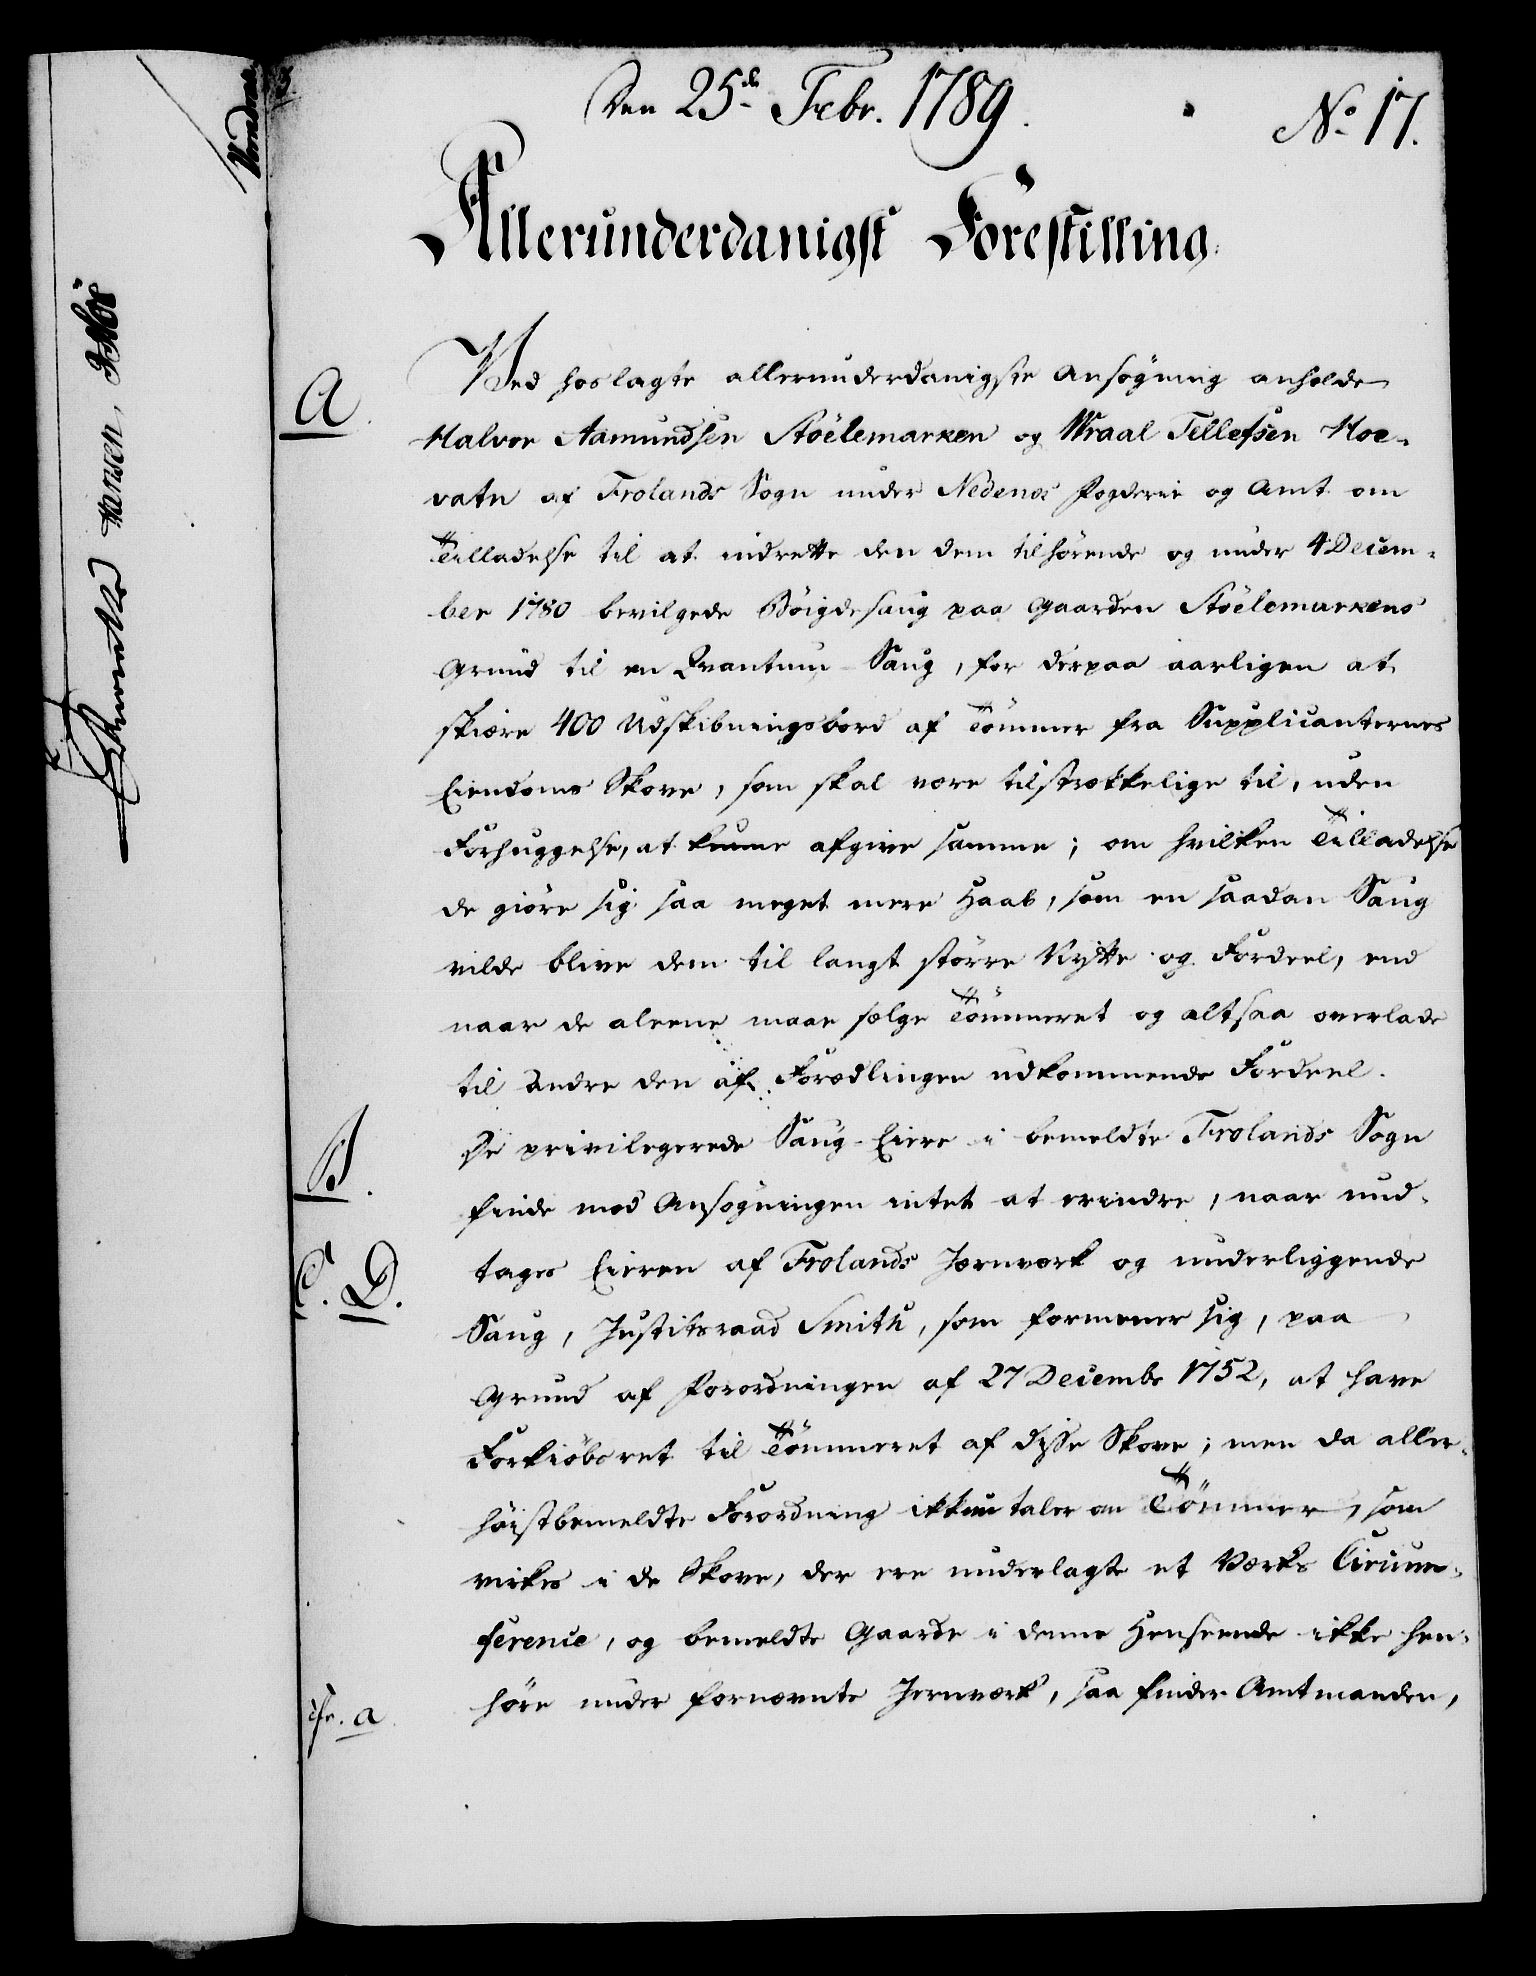 Den 25de Febr. 1789.
No 17.
Allerunderdanigst Forestilling.
A.
Ved hoslagte allerunderdanigste Ansøgning anholde
Halvor Aamundsen Støelemarken og Wraal Tellefsen Moe-
vatn af Frolands Sogn under Nedenes Fogderie og Amt om
Tilladelse til at indrette den dem tilhørende og under 4 Decem-
ber 1780 bevilgede Böigdesaug paa Gaarden Støelemarkens
Grund til en Qvantum-Saug, for derpaa aarligen at
skiære 400 Udskibningsbord af Tömmer fra Supplicanternes
Eiendoms Skove, som skal være tilstrækkelige til, uden
Forhuggelse, at kunne afgive samme; om hvilken Tilladelse
de giöre sig saa meget mere Haab, som en saadan Saug
vilde blive dem til langt större Nytte og Fordeel, end
naar de aleene maae sælge Tömmeret og altsaa overlade
til Andre den af Forædlingen udkommende Fordeel.
B.
De privilegerede Saug-Eiere i bemeldte Frolands Sogn
finde mod Ansøgningen intet at erindre, naar und-
C. D.
tages Eieren af Frolands Jernværk og underliggende
Saug, Justitsraad Smith, som formener sig, paa
Grund af Forordningen af 27 Decembr 1752, at have
Forkiöbsret til Tömmeret af disse Skove; men da aller-
höistbemeldte Forordning ikkun taler om Tömmer, som
virkes i de Skove, der ere underlagte et Værks Circum-
ference, og bemeldte Gaarde i denne Henseende ikke hen-
cfr. a
höre under fornævnte Jernværk, saa finder Amtmanden,
Hansen